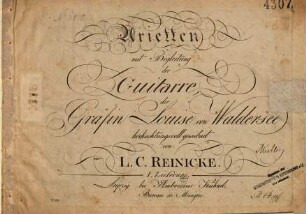 4307
Arietten
mit Begleitung
der
Guitarre,
der
Gräfin Louise von Waldersee
hochachtungsvoll gewidmet
von
L.C. REINICKE.
1. Lieferung.
Leipzig bei Ambrosius Kühnel,
Bureau de Musique.